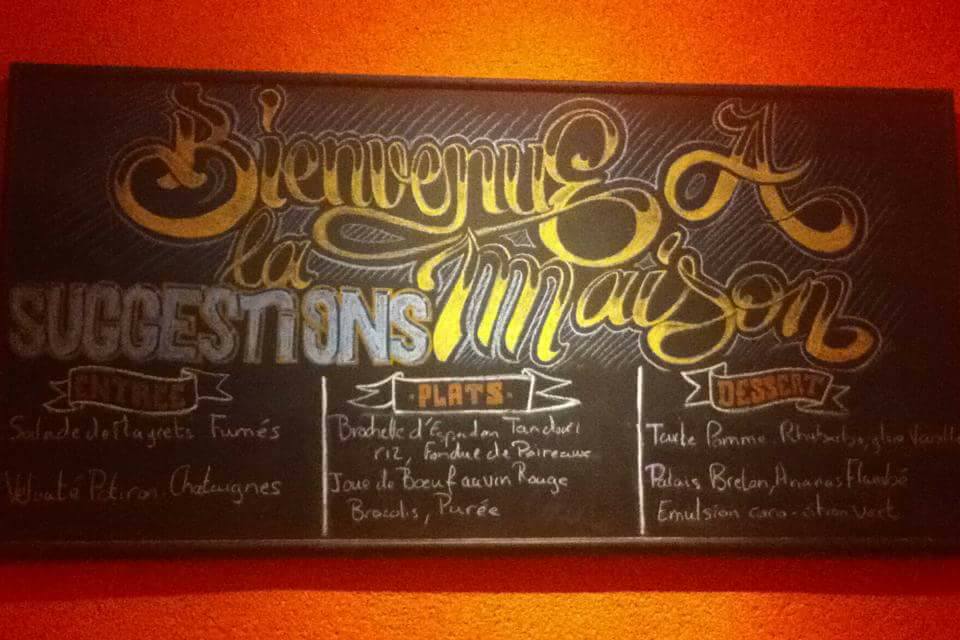 Bienvenue A
la Maison
SUGGESTIONS
ENTREE
Salade de Magrets Fumés
Velouté Potiron. Chataignes
PLATS
Brochette d'Espadon Tandouri
riz, Fondue de Poireaux
Joue de Boeuf au vin Rouge
Brocolis, Purée
DESSERT
Tarte Pomme. Rhubarbe, glace Vanille
Palais Breton, Ananas Flambé
Emulsion coco - citron vert